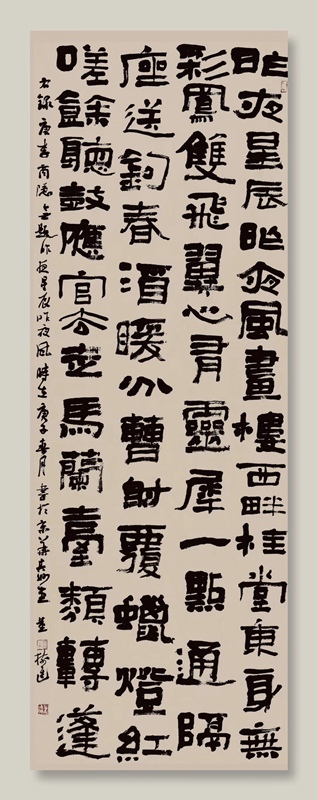 昨夜星辰昨夜風畫樓西畔桂堂東身無
彩鳳雙飛翼心有靈犀一點通隔
座送鉤春酒暖分曹射覆蠟燈紅
嗟餘聽鼓應官去走馬蘭臺類轉蓬
右録唐李商隱無題昨夜星辰昨夜風時在庚子春月書於京華